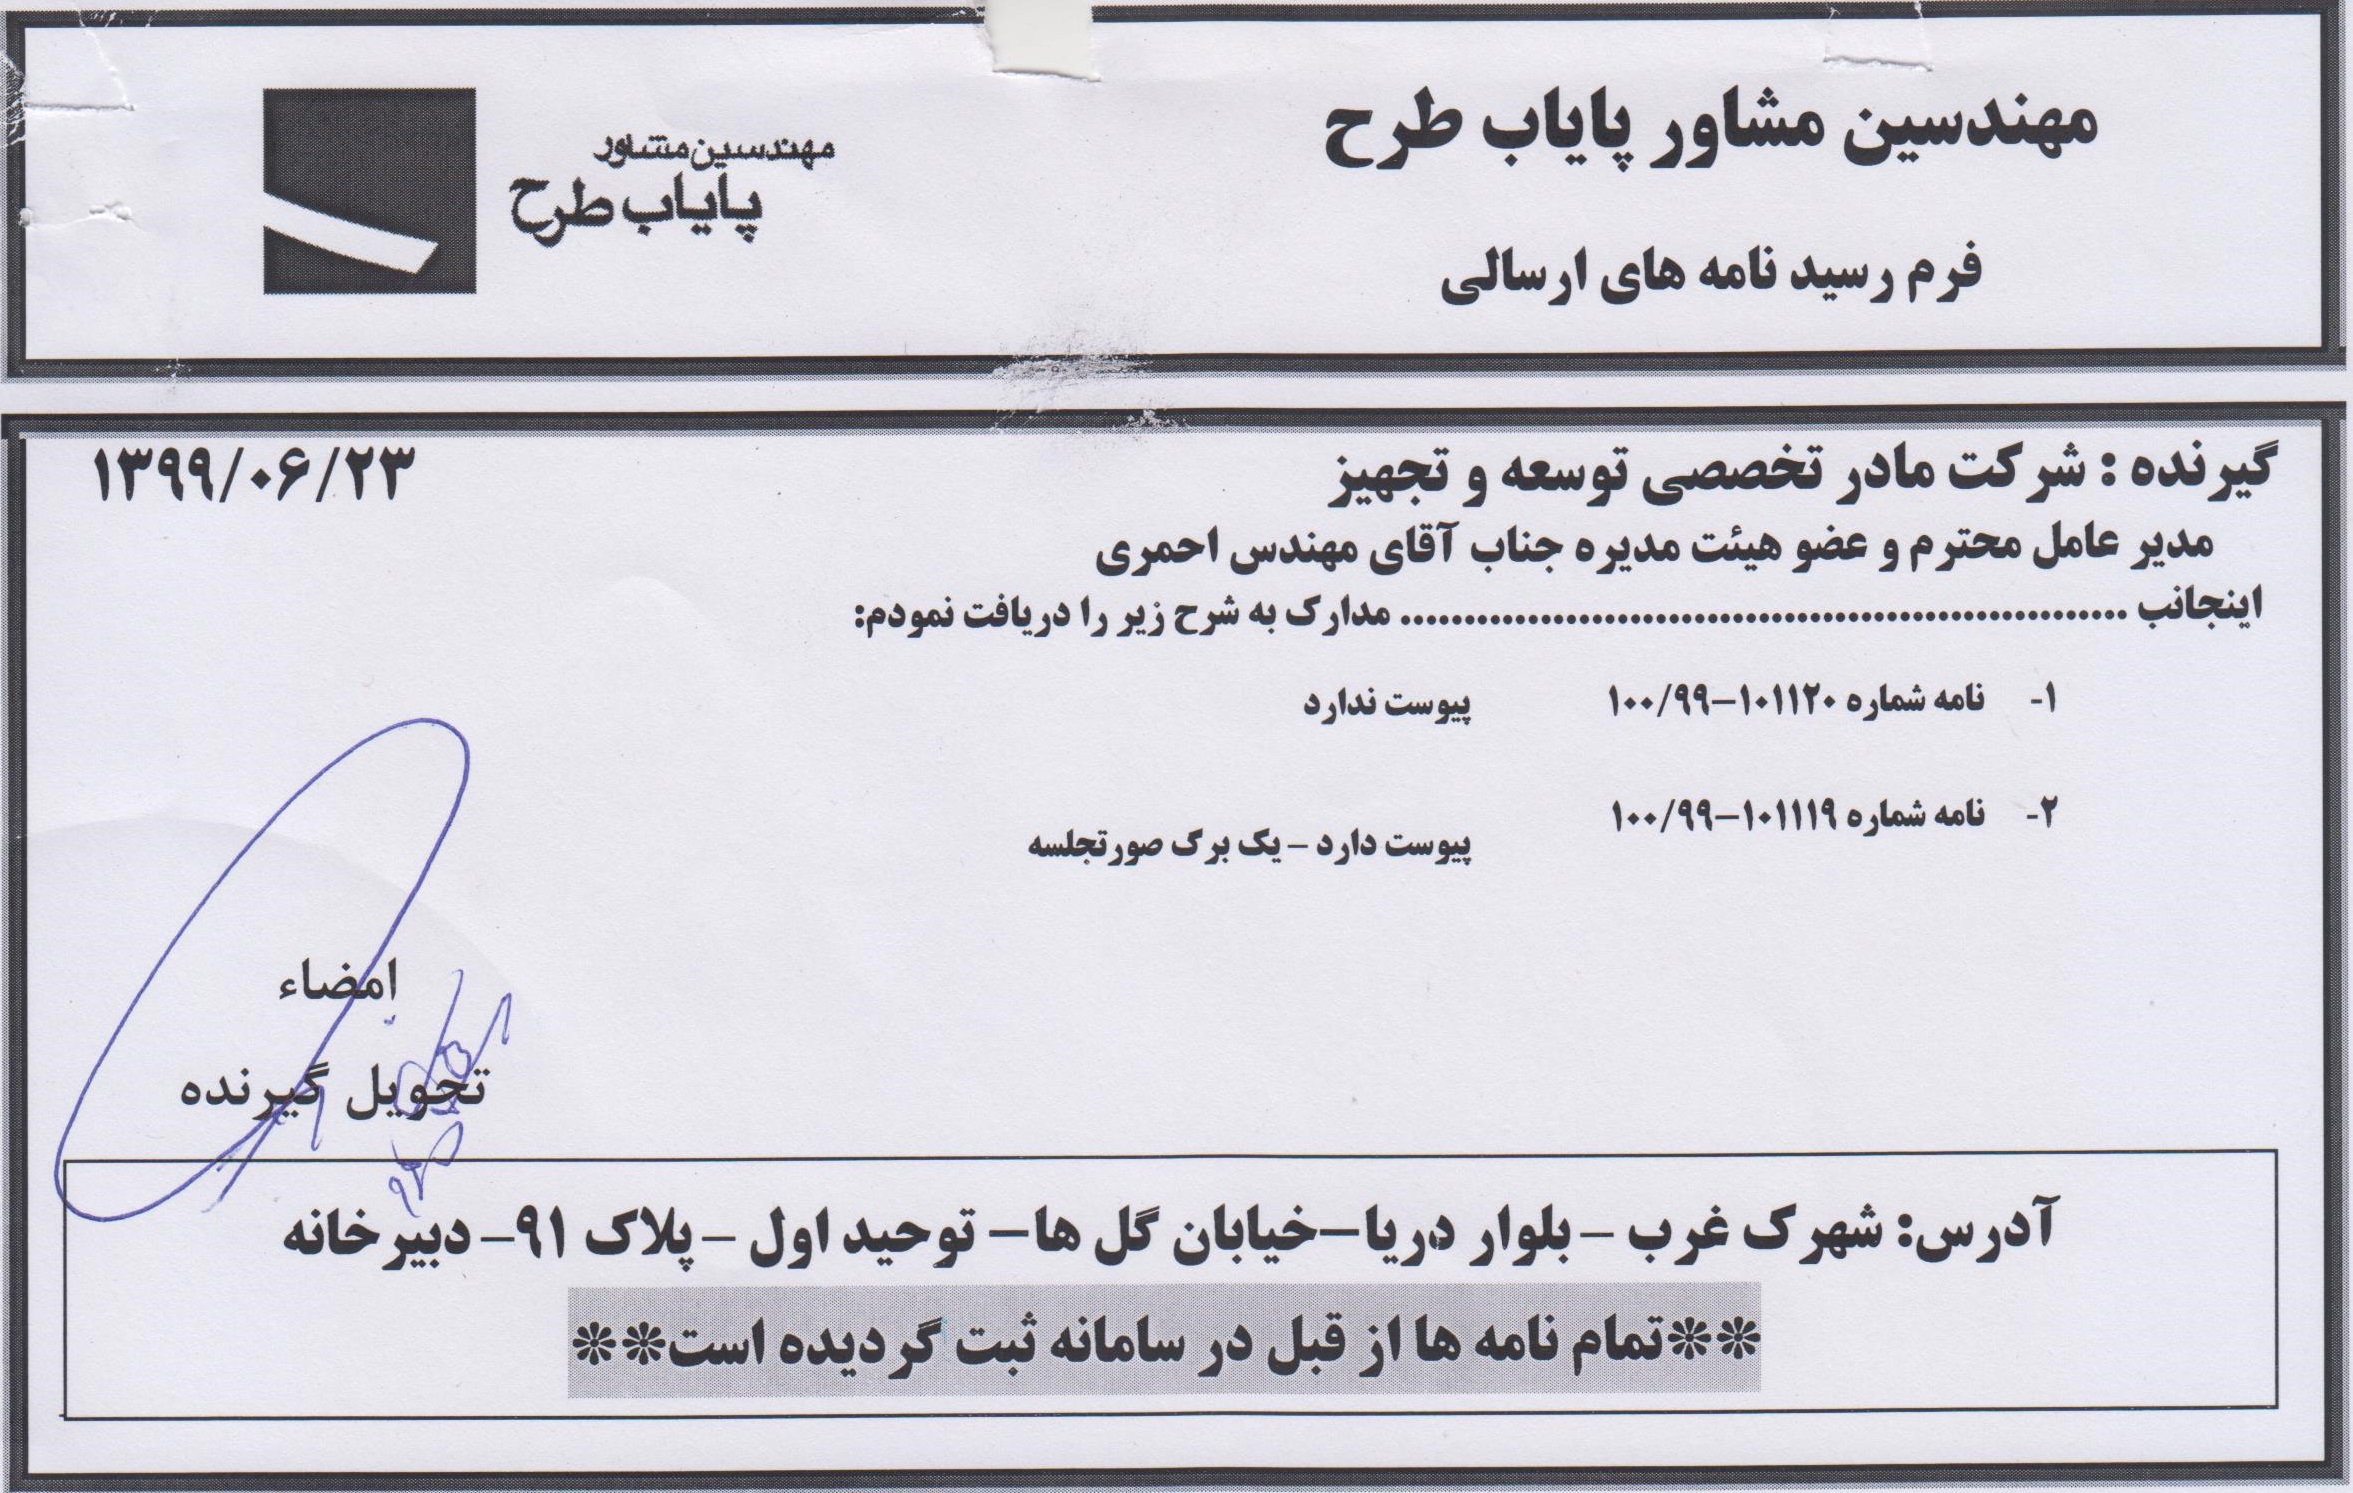 مهندسین مشاور پایاب طرح
مهندسین مشاور
پایاب طرح
فرم رسید نامه های ارسالی
گیرنده : شرکت مادر تخصصی توسعه و تجهیز
۱۳۹۹/۰۶/۲۳
مدیر عامل محترم و عضو هیئت مدیره جناب آقای مهندس احمری
اینجانب ........................................................ مدارک به شرح زیر را دریافت نمودم:
۱- نامه شماره ۱۰۱۱۲۰-۱۰۰/۹۹ پیوست ندارد
۲- نامه شماره ۱۰۱۱۱۹-۱۰۰/۹۹
پیوست دارد – یک برگ صورتجلسه
امضاء
تحویل گیرنده
آدرس: شهرک غرب – بلوار دریا–خیابان گل ها– توحید اول – پلاک ۹۱– دبیرخانه
**تمام نامه ها از قبل در سامانه ثبت گردیده است**